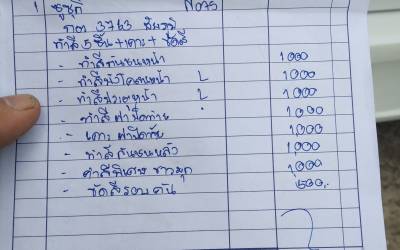 1 ซูซูกิ No75
กต 3763 ชัยภูมิ
ทำสี 5 ชิ้น + เคาะ + ขัดสี
- ทำสีกันชนหน้า 1000
- ทำสีบังโคลนหน้า L 1000
- ทำสีประตูหน้า L 1000
- ทำสีฝาปิดท้าย 1000
- เคาะฝาปิดท้าย 1000
- ทำสีกันชนหลัง 1000
- ค่าสีพิเศษ ขาวมุก 1,000
- ขัดสีรอบคัน 500.-